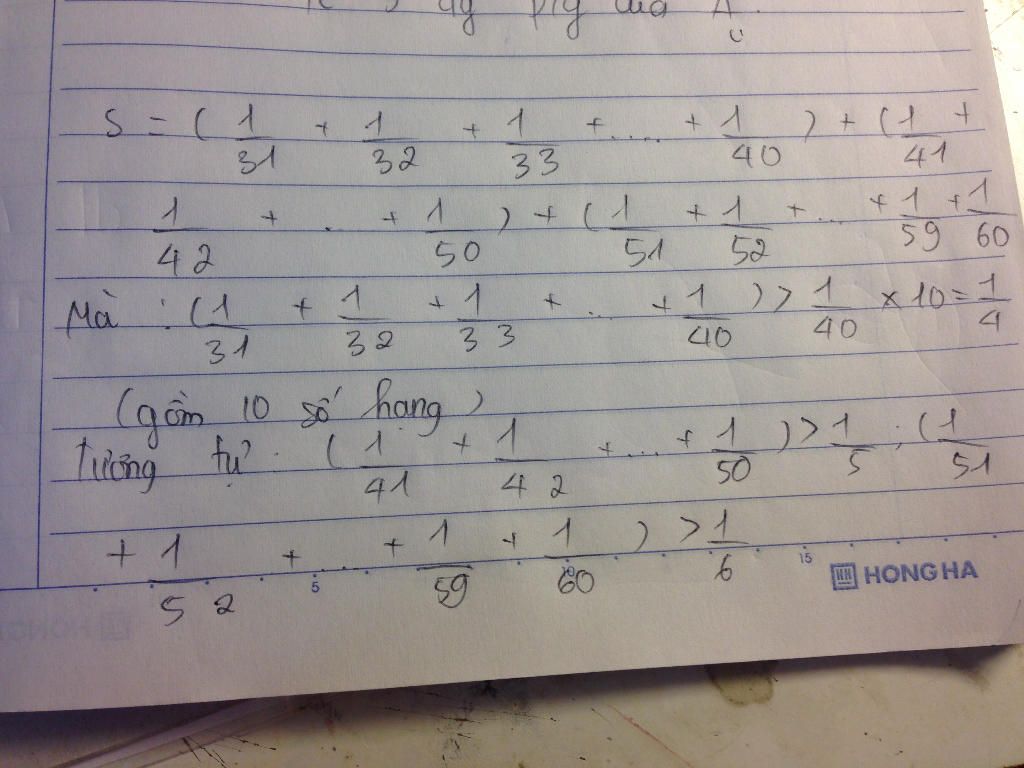 S = ( 1/31 + 1/32 + 1/33 + .... + 1/40 ) + ( 1/41 +
1/42 + ... + 1/50 ) + ( 1/51 + 1/52 + ... + 1/59 + 1/60
Mà : ( 1/31 + 1/32 + 1/33 + ... + 1/40 ) > 1/40 × 10 = 1/4
(gồm 10 số hạng)
Tương tự : ( 1/41 + 1/42 + ... + 1/50 ) > 1/5 ; ( 1/51
+ 1/52 + ... + 1/59 + 1/60 ) > 1/6
5 10 15 HONG HA